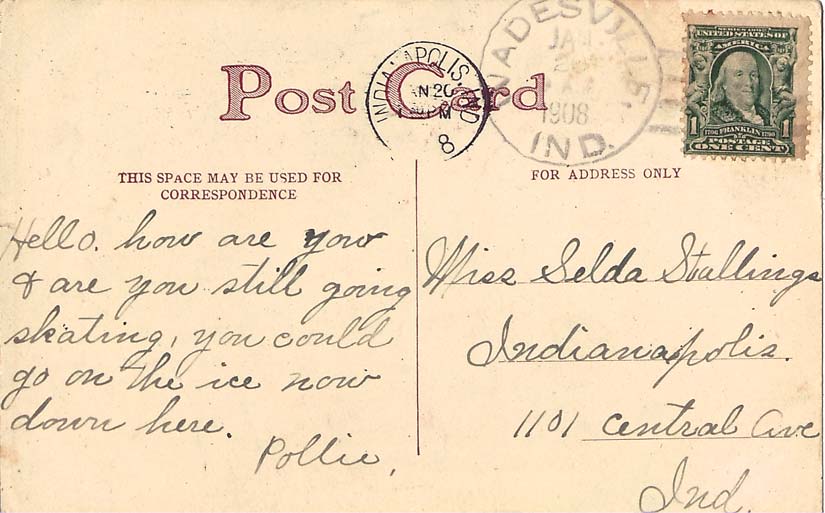 Post Card
INDIANAPOLIS
20
8
WADESVILLE,
JAN
1908
IND.
SERIES 1902
UNITED STATES OF
AMERICA
1706 FRANKLIN 1790
1 POSTAGE 1
ONE CENT
THIS SPACE MAY BE USED FOR
CORRESPONDENCE
Hello. how are you
& are you still going
skating, you could
go on the ice now
down here.
Pollie,
FOR ADDRESS ONLY
Miss Selda Stallings
Indianapolis.
1101 Central Ave
Ind.